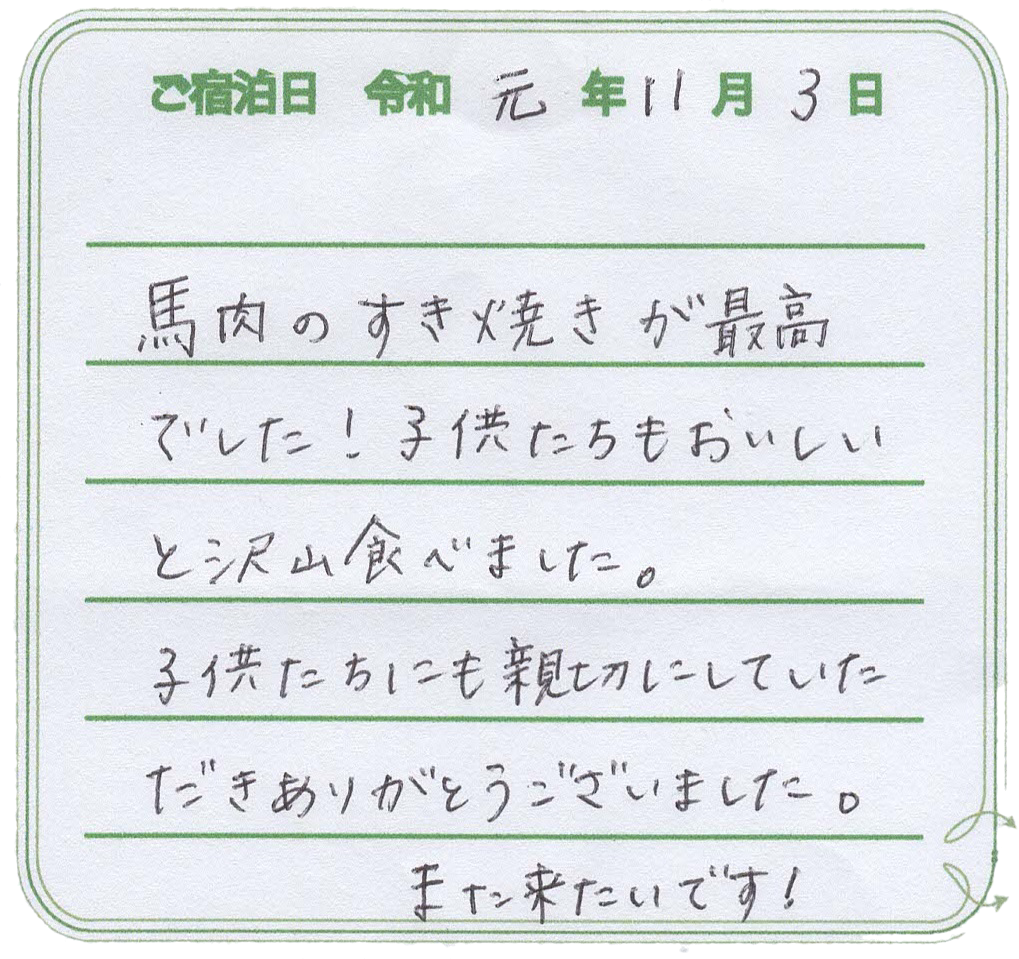 ご宿泊日 令和 元 年 11 月 3 日
馬肉のすき焼きが最高
でした！子供たちもおいしい
と沢山食べました。
子供たちにも親切にしていた
だきありがとうございました。
また来たいです！